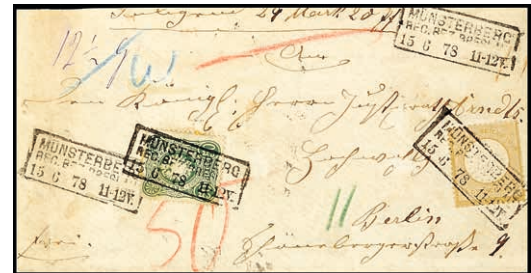 24 Mark 20
MÜNSTERBERG
REG. BEZ. BRESLAU
15 6 78 11-12V.
12½
An
den Königl. Herrn Justizrath
MÜNSTERBERG
REG. BEZ. BRESLAU
15 6 78 11-12V.
MÜNSTERBERG
REG. BEZ. BRESLAU
15 6 78 11-12V.
MÜNSTERBERG
REG. BEZ. BRESLAU
15 6 78 11-12V.
50
11
Berlin
frei.
Schönebergerstraße 9.